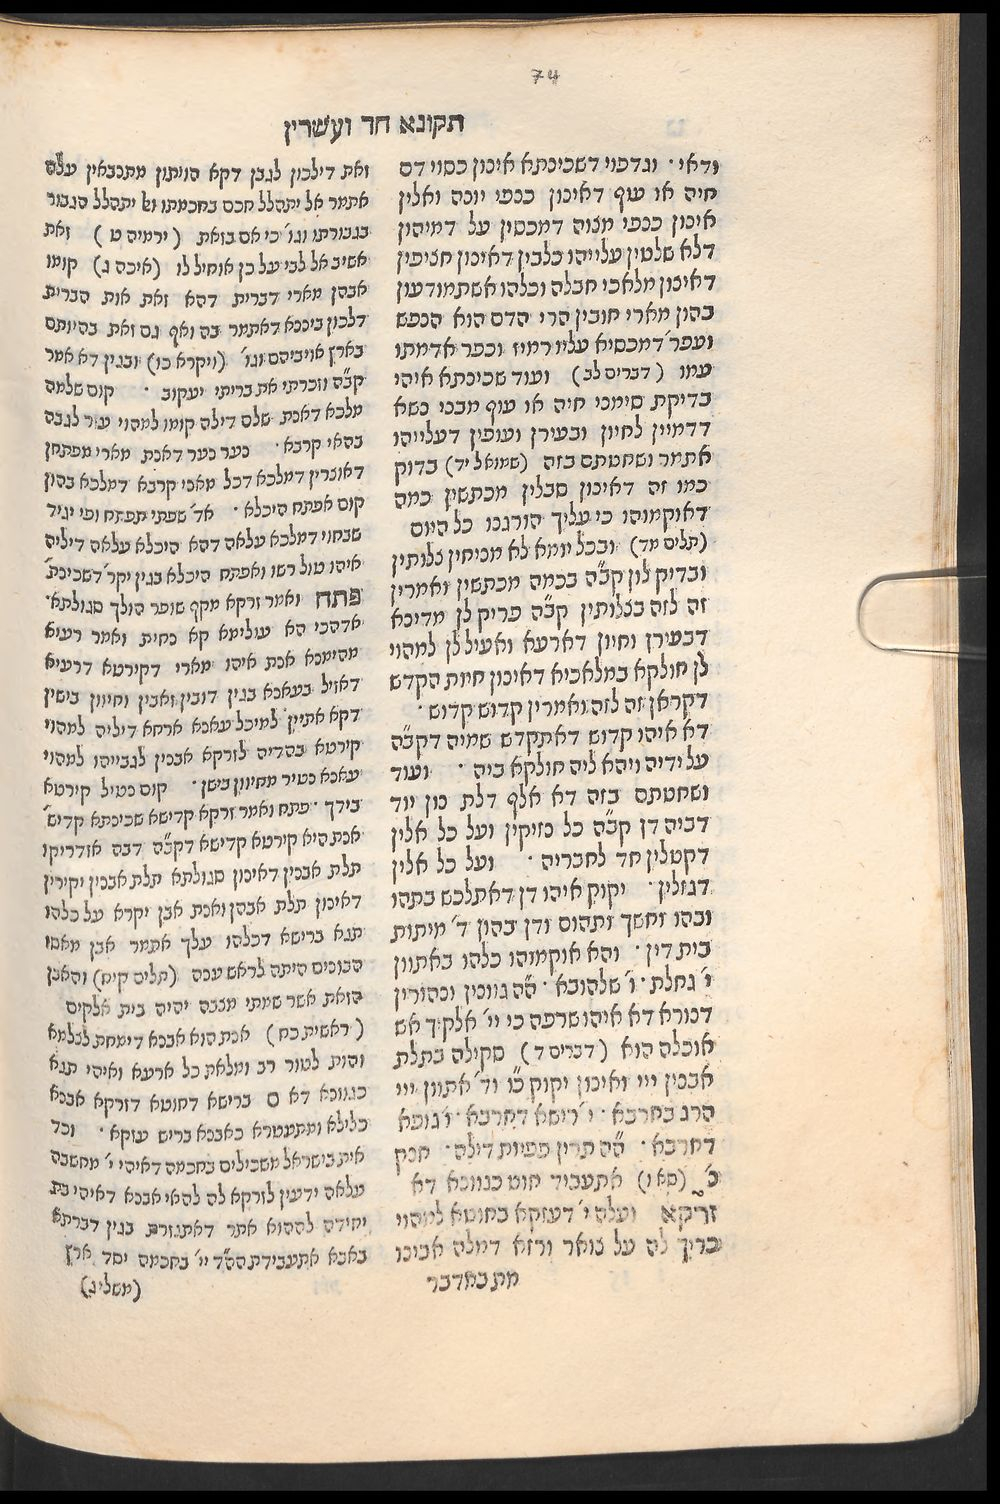 74
תקונא חד ועשרין
ודאי · וגדפוי דשכינתא אינון כסוי דם
חיה או עוף דאינון כנפי יונה ואלין
אינון כנפי מצוה דמכסין על דמיהון
דלא שלטין עלייהו כלבין דאינון חציפין
דאינון מלאכי חבלה וכלהו אשתמודעון
בהון מארי חובין הרי הדם הוא הנפש
ועפר׳ דמכסיא עליו רמיז וכפר אדמתו
עמו (דברים לב) ועוד שכינתא איהי
בדיקת סימני חיה או עוף מבני נשא
דדמיין לחיון ובעירן ועופין דעלייהו
אתמר ושחטתם בזה (שמואל יד) בדוק
כמו זה דאינון סבלין מכתשין כמה
דאוקמוהו כי עליך הורגנו כל היום
(תלים מד) ובכל יומא לא מניחין צלותין
ובדיק לון קב״ה בכמה מכתשין ואמרין
זה לזה בצלותין קב״ה פריק לן מדינא
דבעירן וחיון דארעא ואעיל לן למהוי
לן חולקא במלאכיא דאינון חיות הקדש
דקראן זה לזה ואמרין קדוש קדוש ·
דא איהו קדוש דאתקדש שמיה דקב״ה
על ידיה ויהא ליה חולקא ביה · ועוד
ושחטתם בזה דא אלף דלת נון יוד
דביה דן קב״ה כל נזיקין ועל כל אלין
דקטלין חד לחבריה · ועל כל אלין
דגזלין · יקוק איהו דן דאתלבש בתהו
ובהו וחשך ותהום ודן בהון ד׳ מיתות
בית דין · והא אוקמוהו כלהו באתוון
י׳ גחלת · ו׳ שלהובא · ה״ה גוונין ונהורין
דנורא דא איהו שרפה כי יי׳ אלקיך אש
אוכלה הוא (דברים ד) סקילה בתלת
אבנין ייי ואינון יקוק כ״ו וד׳ אתוון ייי
הרג בחרבא · י׳ רישא דחרבא · ו׳ גופא
דחרבא · ה״ה תרין פפיות דילה · חנק
כ׳ (סא ו) אתעביד חוט כגוונא דא
זרקא ועלה י׳ דעזקא בחוטא למהוי
כריך לה על צואר ורזא דמלה אבינו
מת במדבר
וזאת דילכון לגבן דקא הויתון מתכבאין עלה
אתמר אל יתהלל חכם בחכמתו ואל יתהלל הגבור
בגבורתו וגו׳ כי אם בזאת (ירמיה ט) זאת
אשיב אל לבי על כן אוחיל לו (איכה ג) קומו
אבהן מארי דברית דהא זאת אות הברית
דלכון ביננא דאתמר בה ואף גם זאת בהיותם
בארץ אויביהם וגו׳ (ויקרא כו) ובגין דא אמר
קב״ה וזכרתי את בריתי יעקוב · קום שלמה
מלכא דאנת שלם דילה קומו למהוי עזר לגבה
בהאי קרבא · נער נער דאנת מארי מפתחן
דאוצרין דמלכא דכל מאני קרבא דמלכא בהון
קום אפתח היכלא · אד׳ שפתי תפתח ופי יגיד
שבחוי דמלכא עלאה דהא היכלא עלאה דיליה
איהו טול רשו ואפתח היכלא בגין יקר׳ דשכינת׳
פתח ואמר זרקא מקף שופר הולך סגולתא·
אדהכי הא עולימא קא נחית ואמר רעיא
מהימנא אנת איהו מארי דקירטא דרעיא
דאזיל בעאנא בגין דובין וזאבין וחיוון בישין
דקא אתיין למיכל עאנא ארחא דיליה למהוי
קירטא בהדיה לזרקא אבנין לגבייהו למהוי
עאנא נטיר מחיוון בישן · קום נטיל קירטא
בידך · פתח ואמר זרקא קדישא שכינתא קדיש׳
אנת היא קירטא קדישא דקב״ה דבה אזדריקו
תלת אבנין דאינון סגולתא תלת אבנין יקירין
דאינון תלת אבהן ואנת אבן יקרא על כלהו
תגא ברישא דכלהו עלך אתמר אבן מאסו
הבונים היתה לראש פנה (תלים קיח) והאבן
הזאת אשר שמתי מצבה יהיה בית אלקים
(ראשית כח) אנת הוא אבנא דימחת לצלמא
והות לטור רב ומלאת כל ארעא ואיהי תגא
כגוונא דא ס ברישא דחוטא דזרקא אבנא
כלילא ומתעטרא כאבנא בריש עזקא · וכד
אית בישראל משכילים בחכמה דאיהי י׳ מחשבה
עלאה ידעין לזרקא לה להאי אבנא דאיהי בת
יחידה לההוא אתר דאתגזרת בגין דברתא
באבא אתעבידת הה״ד יי׳ בחכמה יסד ארץ
(משלי ג)